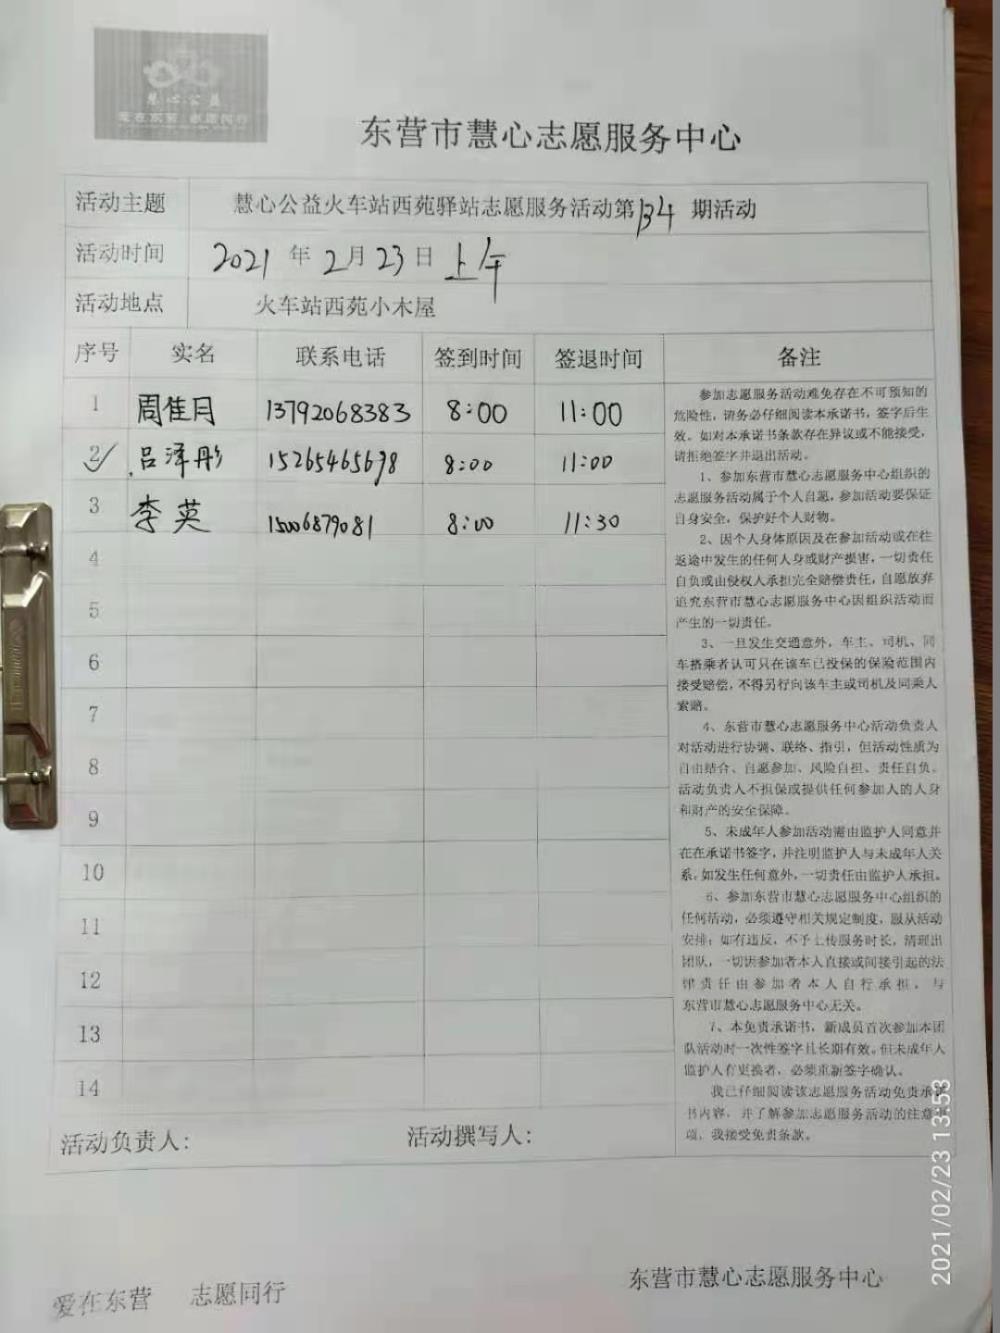 慧心公益
爱在东营 志愿同行
东营市慧心志愿服务中心
活动主题 慧心公益火车站西苑驿站志愿服务活动第134期活动
活动时间 2021年2月23日上午
活动地点 火车站西苑小木屋
序号 实名 联系电话 签到时间 签退时间 备注
1 周佳月 13792068383 8:00 11:00
2 吕泽彤 15265465698 8:00 11:00
3 李英 15006879081 8:00 11:30
4
5
6
7
8
9
10
11
12
13
14
参加志愿服务活动难免存在不可预知的
危险性，请务必仔细阅读本承诺书，签字后生
效。如对本承诺书条款存在异议或不能接受，
请拒绝签字并退出活动。
1、参加东营市慧心志愿服务中心组织的
志愿服务活动属于个人自愿，参加活动要保证
自身安全，保护好个人财物。
2、因个人身体原因及在参加活动或在往
返途中发生的任何人身或财产损害，一切责任
自负或由侵权人承担完全赔偿责任，自愿放弃
追究东营市慧心志愿服务中心因组织活动而
产生的一切责任。
3、一旦发生交通意外，车主、司机、同
车搭乘者认可只在该车已投保的保险范围内
接受赔偿，不得另行向该车主或司机及同乘人
索赔。
4、东营市慧心志愿服务中心活动负责人
对活动进行协调、联络、指引，但活动性质为
自由结合、自愿参加、风险自担、责任自负。
活动负责人不担保或提供任何参加人的人身
和财产的安全保障。
5、未成年人参加活动需由监护人同意并
在在承诺书签字，并注明监护人与未成年人关
系。如发生任何意外，一切责任由监护人承担。
6、参加东营市慧心志愿服务中心组织的
任何活动，必须遵守相关规定制度，服从活动
安排；如有违反，不予上传服务时长，清理出
团队，一切因参加者本人直接或间接引起的法
律责任由参加者本人自行承担，与
东营市慧心志愿服务中心无关。
7、本免责承诺书，新成员首次参加本团
队活动时一次性签字且长期有效。但未成年人
监护人有更换者，必须重新签字确认。
我已仔细阅读该志愿服务活动免责承诺
书内容，并了解参加志愿服务活动的注意
项，我接受免责条款。
活动负责人： 活动撰写人：
爱在东营 志愿同行 东营市慧心志愿服务中心
2021/02/23 13:53